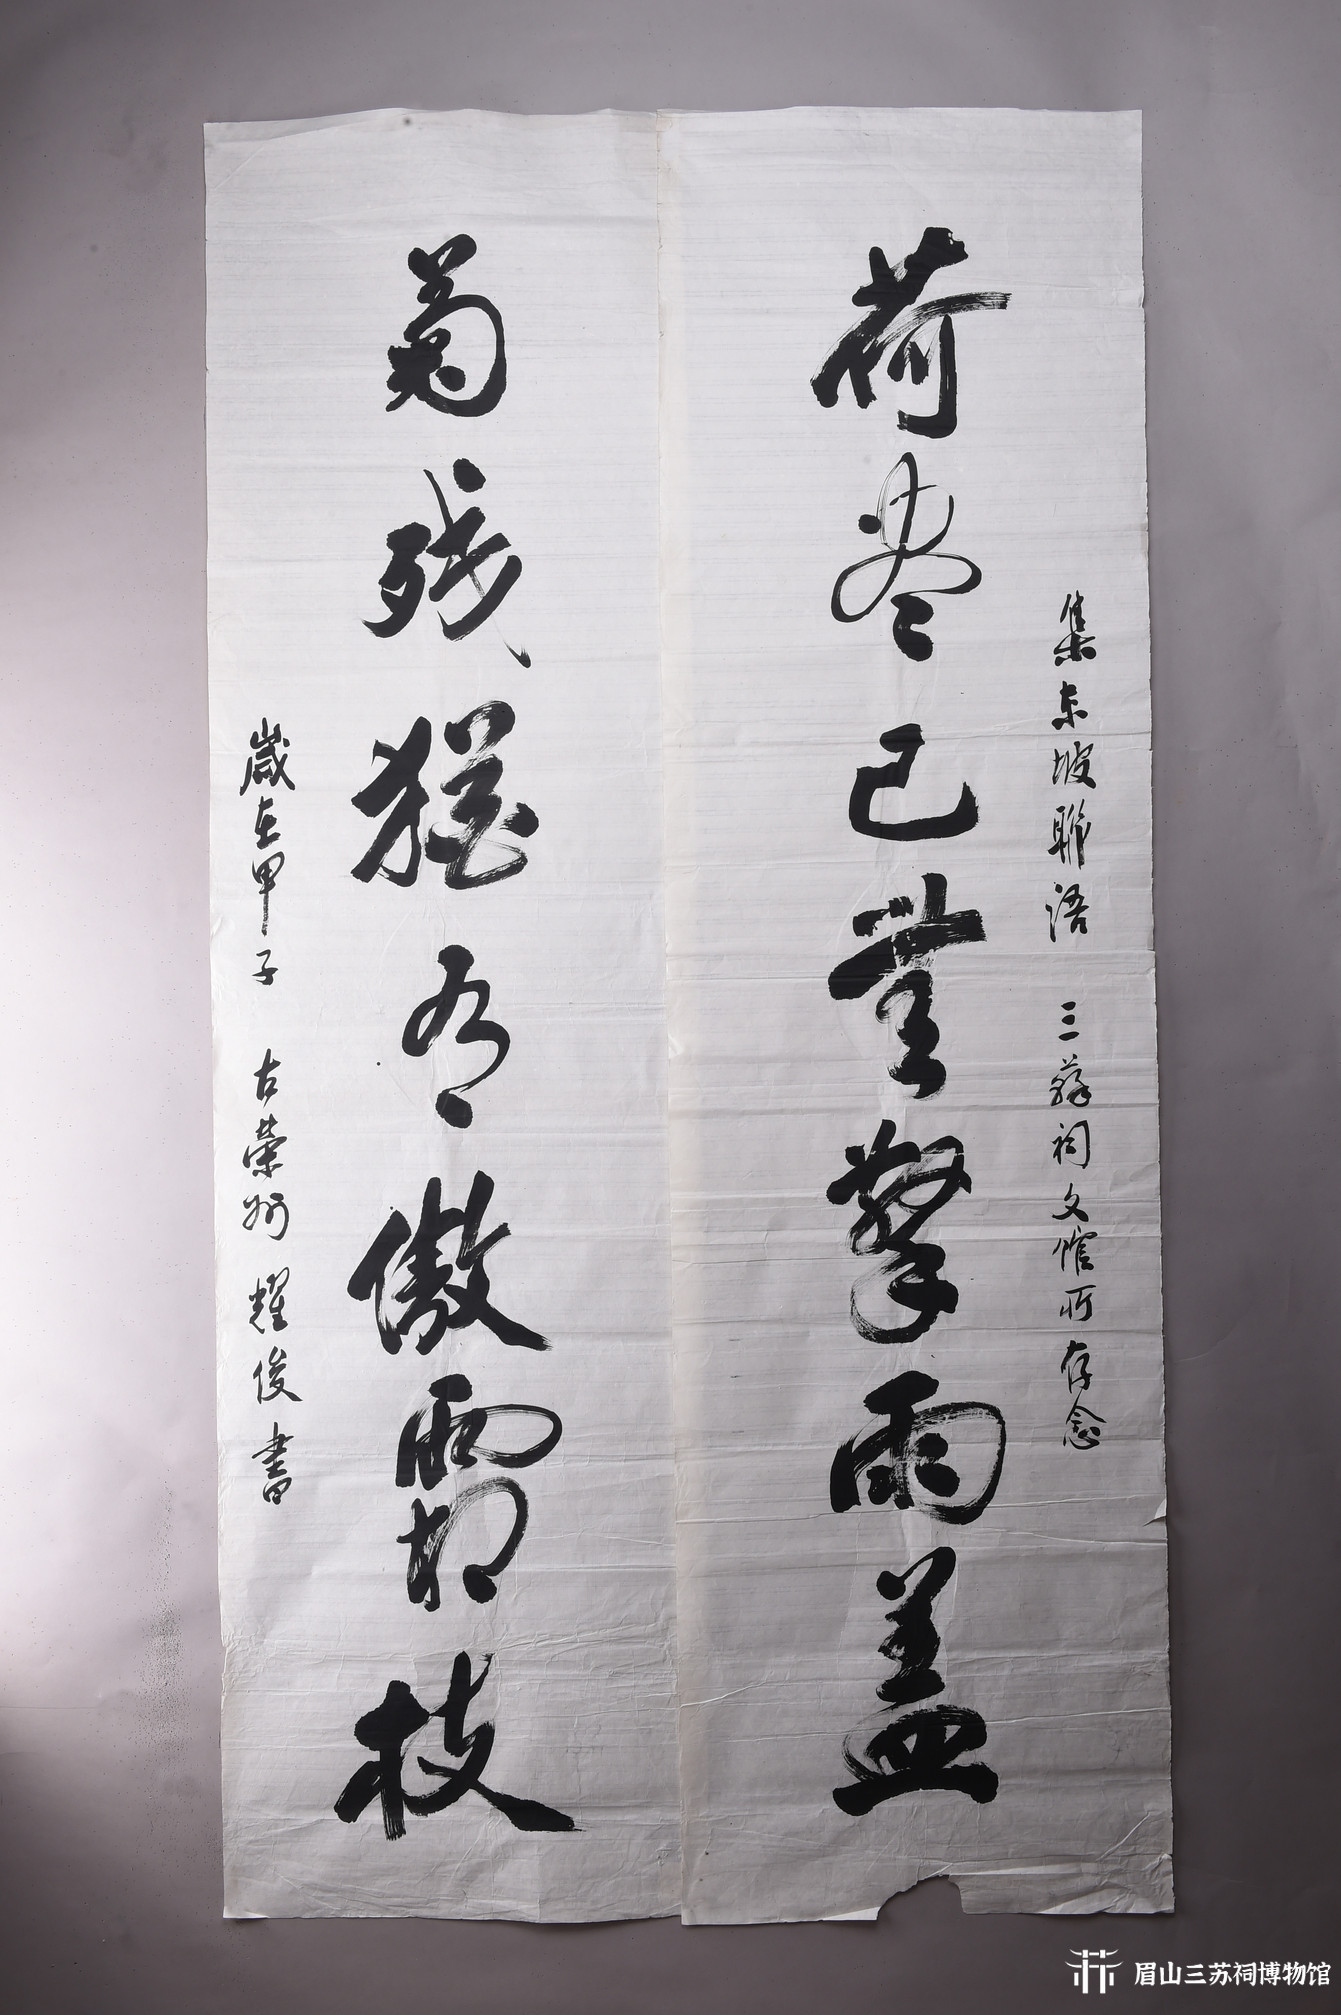 集东坡聯语 三蘇祠文馆所存念
荷尽已無擎雨盖
菊残猶有傲霜枝
歲在甲子 古榮州 耀俊書
眉山三苏祠博物馆